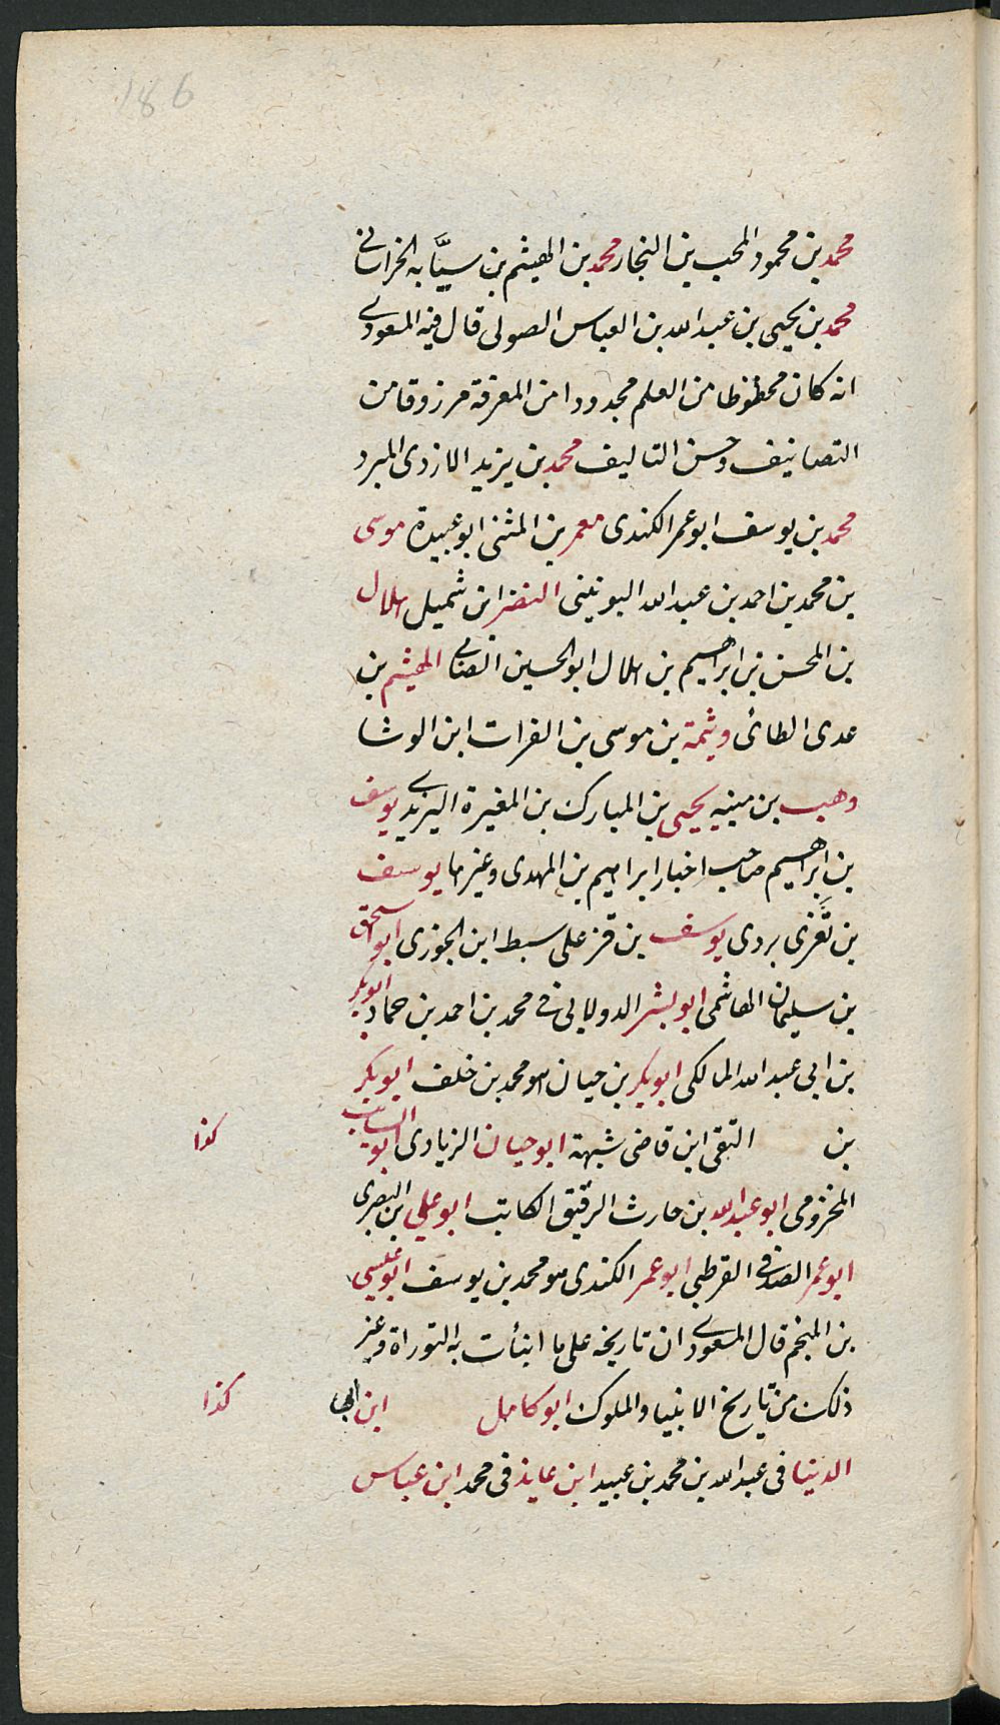 186
محمد بن محمود المحب بن النجار محمد بن الهيثم بن سيَّابه الخراسانى
محمد بن يحيى بن عبد الله بن العباس الصولى قال فيه المسعودى
انه كان محظوظا من العلم مجدودا من المعرفة مرزوقا من
التصانيف وحسن التاليف محمد بن يزيد الازدى المبرد
محمد بن يوسف ابو عمر الكندى معمر بن المثنى ابو عبيدة موسى
بن محمد بن احمد بن عبد الله اليونينى النضر ابن شميل هلال
بن المحسن بن ابراهيم بن هلال ابو الحسين الصابى الهيثم بن
عدى الطائى وثيمة بن موسى بن الفرات ابن الوشا
وهب بن منبه يحيى بن المبارك بن المغيرة اليزيدى يوسف
بن ابراهيم صاحب اخبار ابراهيم بن المهدى وغيرها يوسف
بن تغرى بردى يوسف بن قزعلى سبط ابن الجوزى ابو اسحق
بن سليمان الهاشمى ابو بشر الدولابى فى محمد بن احمد بن حماد ابو بكر
بن ابى عبد الله المالكى ابو بكر بن حيان هو محمد بن خلف ابو بكر
بن التقى ابن قاضى شهبة ابو حيان الزيادى ابو السائب
كذا
المخزومى ابو عبد الله بن حارث الرقيق الكاتب ابو على ابن البصرى
ابو عمر الصدفى القرطبى ابو عمر الكندى هو محمد بن يوسف ابو عيسى
بن المنجم قال المسعودى ان تاريخه على ما انبأت به التوراة وغير
ذلك من تاريخ الانبيا والملوك ابو كامل ابن ابى
كذا
الدنيا فى عبد الله بن محمد بن عبيد ابن عايذ فى محمد ابن عباس